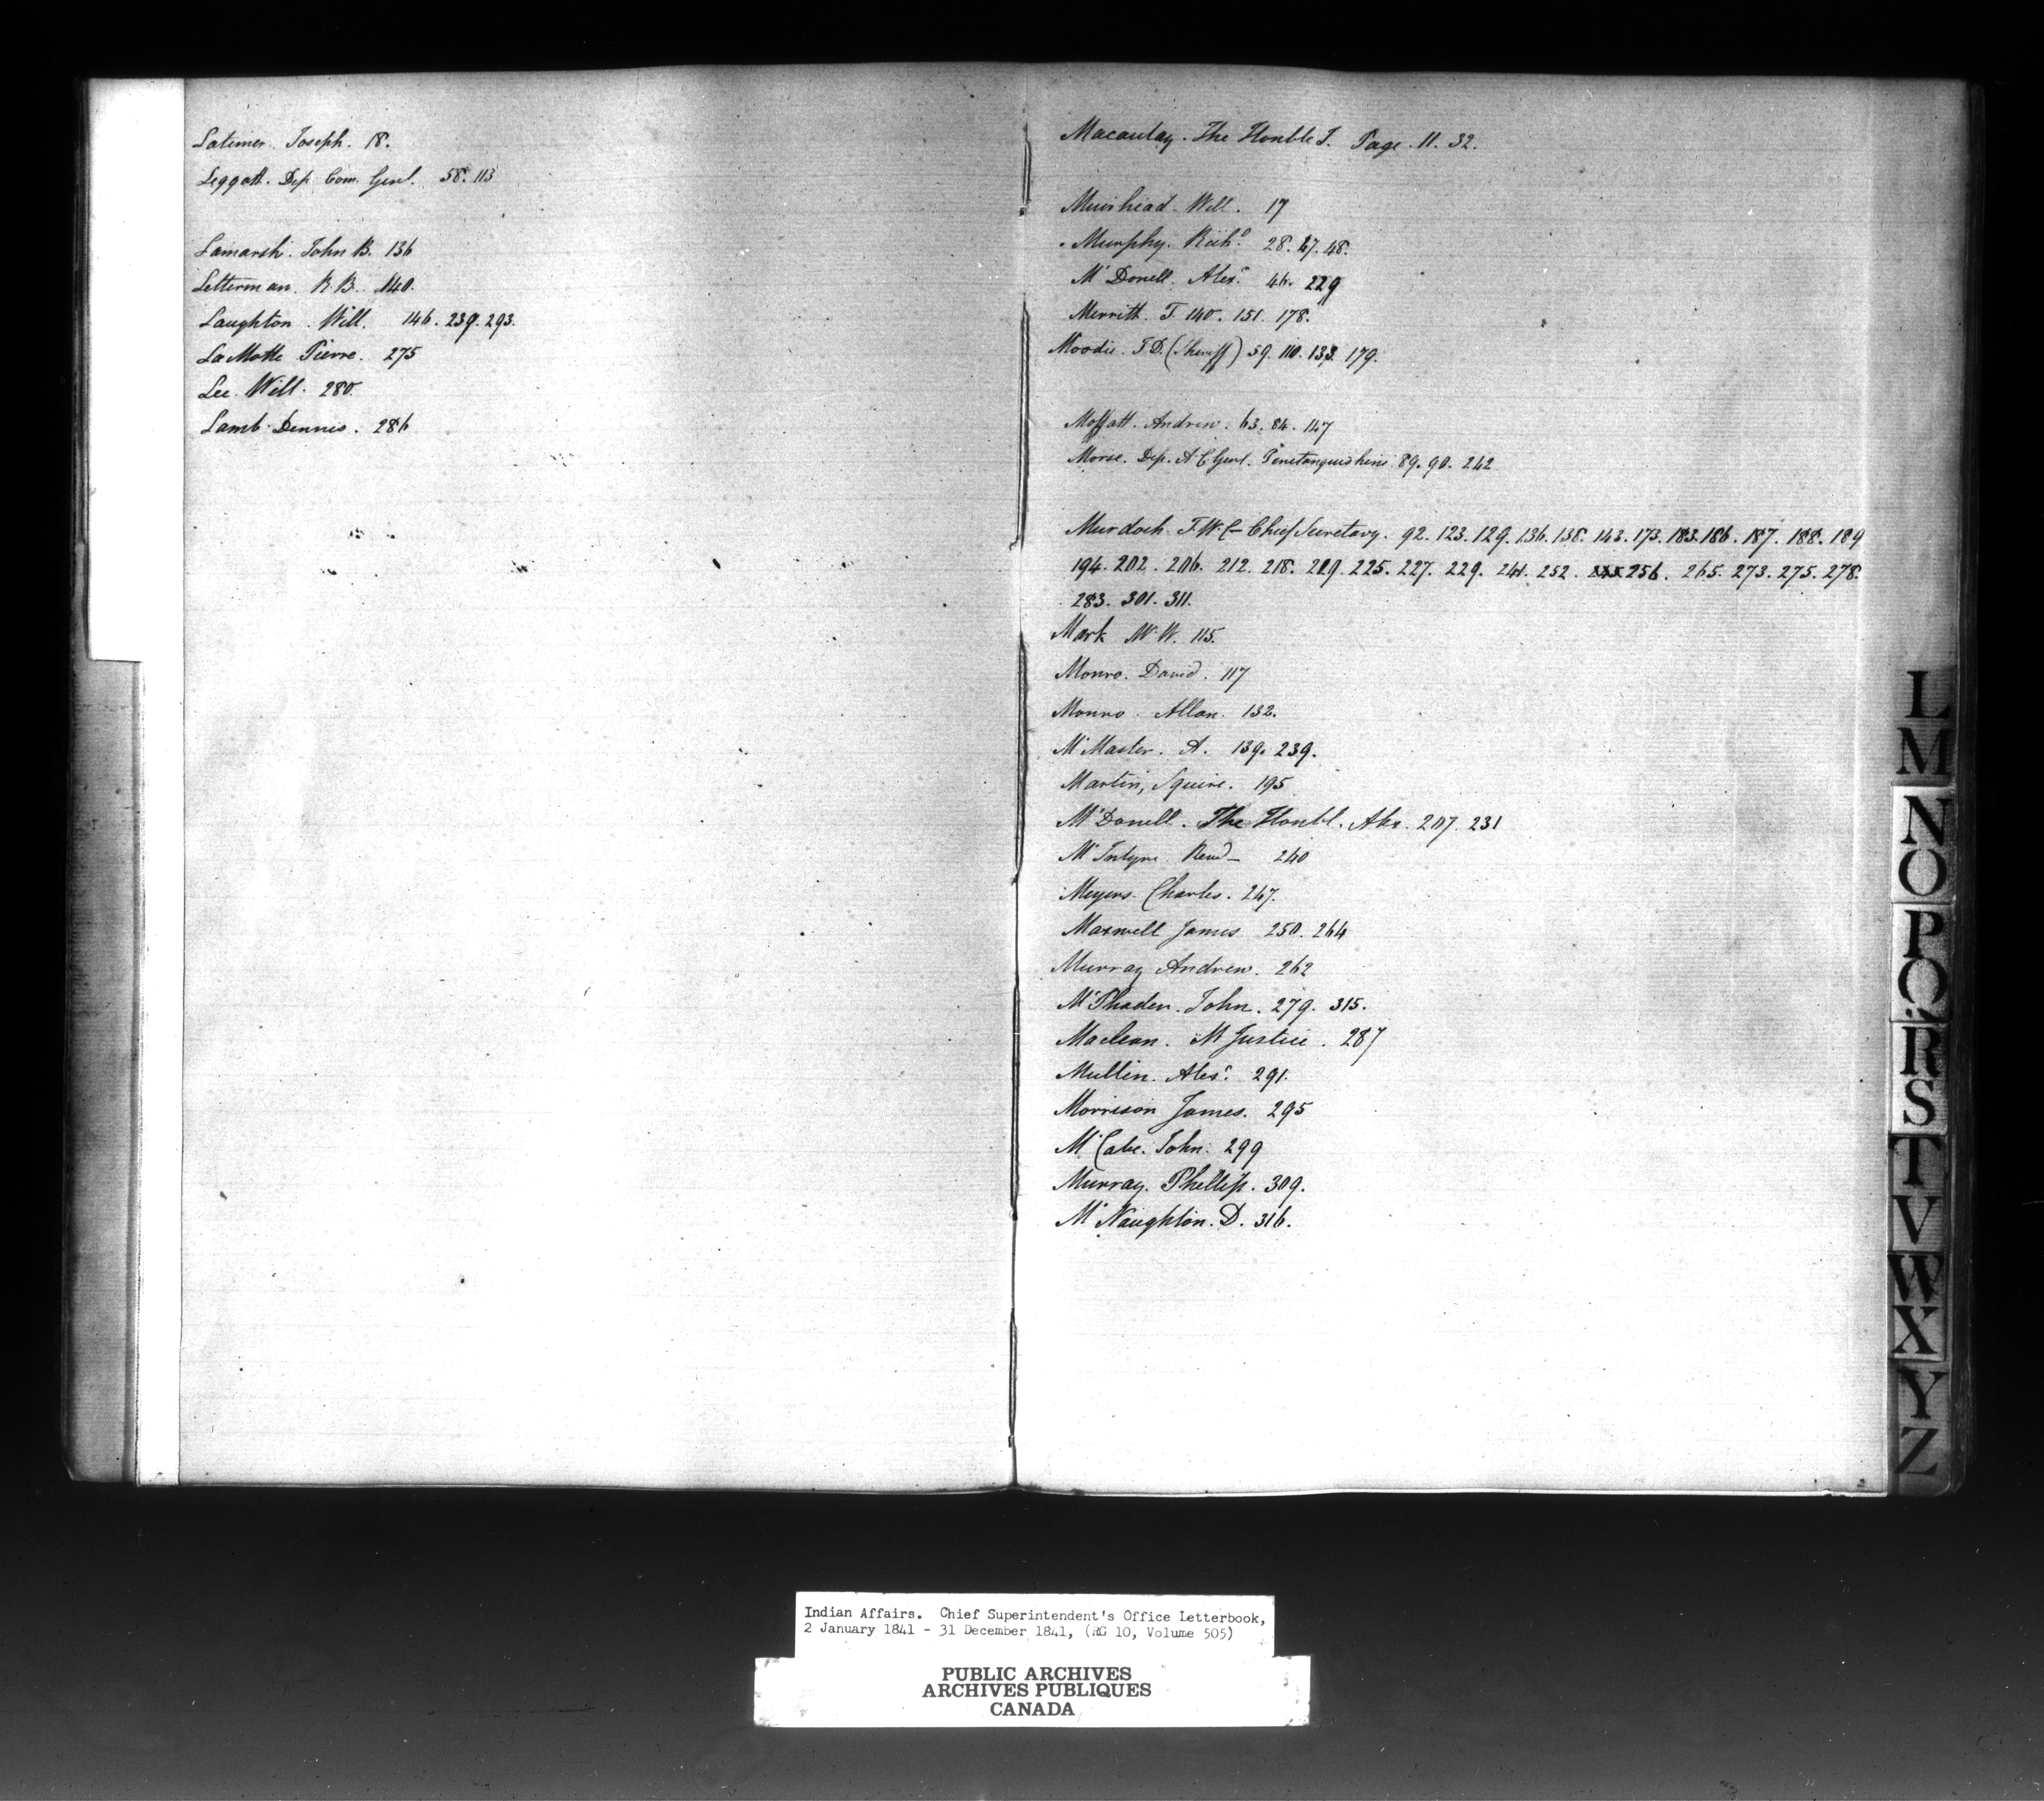 Latimer. Joseph. 18.
Leggatt. Dep Com. Genl. 58. 113
Lamarsh. John B. 136
Letterman. R B. 140.
Laughton. Will. 146. 239. 293.
LaMotte Pierre. 275
Lee. Will. 280.
Lamb. Dennis. 286
Macaulay. The Honble J. Page. 11. 32.
Muirhead. Will. 17
Murphy. Richd. 28. 47. 48.
Mc Donell. Alexr. 46. 229
Merritt. J. 140. 151. 178.
Moodie. J D. (Sheriff) 59. 110. 133. 179.
Moffatt. Andrew. 63. 84. 147
Morse. Dep. A C Genl. Penetanguishine 89. 90. 242
Murdoch. T. W. C- Chief Secretary. 92. 123. 129. 136. 138. 143. 173. 183. 186. 187. 188. 189
194. 202. 206. 212. 218. 219. 225. 227. 229. 241. 252. 256. 265. 273. 275. 278.
283. 301. 311.
Mark W. W. 115.
Monro. David. 117
Monro. Allan. 132.
Mc Master. A. 139. 239.
Martin, Squire. 195
Mc Donell. The Honbl. Alex. 207. 231
Mc Intyre. Revd- 240
Meyers. Charles. 247.
Maxwell James 250. 264
Murray Andrew. 262
Mc Phaden. John. 279. 315.
Maclean. Mr Justice. 287
Mullin. Alexr. 291.
Morrison James. 295
Mc Cabe. John. 299
Murray. Phillip. 309.
Mc Naughton. D. 316.
L
M
N
O
P
Q
R
S
T
V
W
X
Y
Z
Indian Affairs. Chief Superintendent's Office Letterbook,
2 January 1841 - 31 December 1841, (RG 10, Volume 505)
PUBLIC ARCHIVES
ARCHIVES PUBLIQUES
CANADA